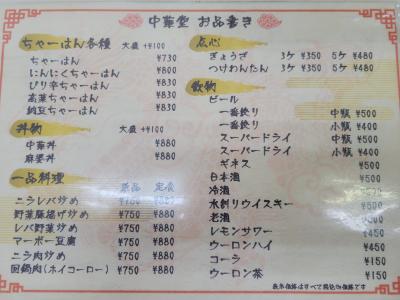 中華堂 お品書き
ちゃーはん各種 大盛 +¥100
ちゃーはん ¥730
にんにくちゃーはん ¥800
ピリ辛ちゃーはん ¥800
高菜ちゃーはん ¥800
納豆ちゃーはん ¥800
丼物 大盛 +¥100
中華丼 ¥880
麻婆丼 ¥880
一品料理 単品 定食
ニラレバ炒め ¥750 ¥880
野菜豚揚げ炒め ¥750 ¥880
レバ野菜炒め ¥750 ¥880
マーボー豆腐 ¥750 ¥880
ニラ肉炒め ¥750 ¥880
回鍋肉(ホイコーロー) ¥750 ¥880
点心
ぎょうざ 3ケ ¥350 5ケ ¥480
つけわんたん 3ケ ¥350 5ケ ¥480
飲物
ビール
一番搾り 中瓶 ¥500
一番搾り 小瓶 ¥400
スーパードライ 中瓶 ¥500
スーパードライ 小瓶 ¥400
ギネス ¥500
日本酒 ¥500
冷酒
水割りウイスキー ¥500
老酒
レモンサワー ¥450
ウーロンハイ ¥450
コーラ ¥150
ウーロン茶 ¥150
表示価格はすべて税込価格です